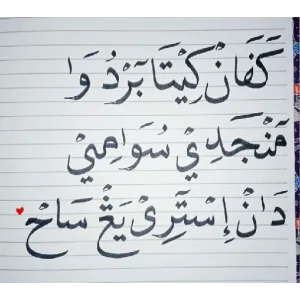 كَفَانْ كِيْتَا بَرْدُوَا
مَنْجَدِيْ سُوَامِيْ
دَانْ إِسْتَرِىْ يَغْ سَاحْ